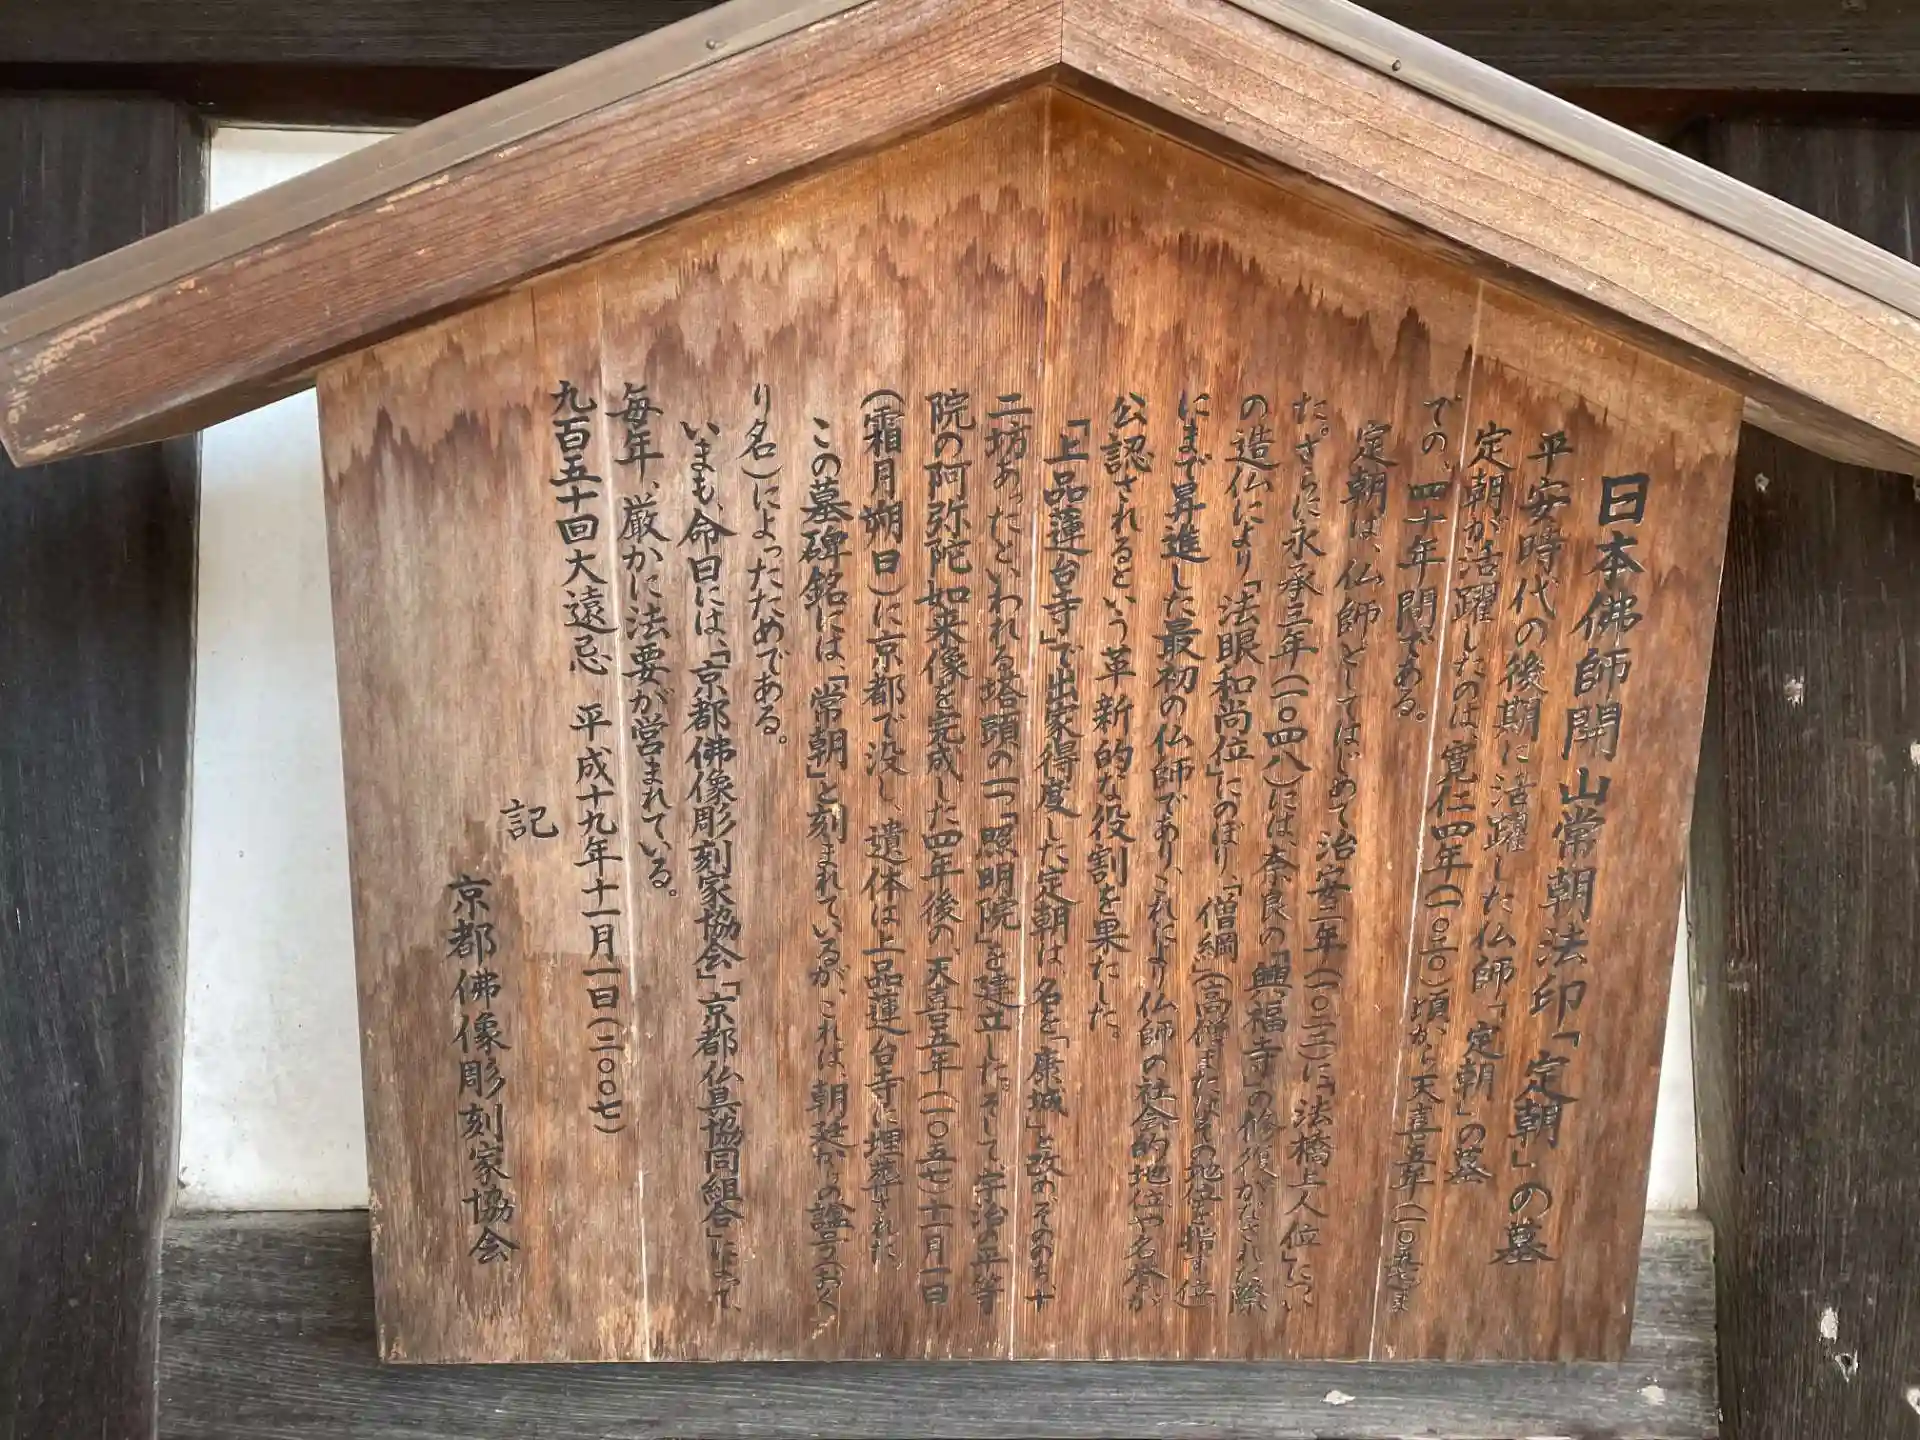 日本佛師開山常朝法印「定朝」の墓
平安時代の後期に活躍した仏師「定朝」の墓
定朝が活躍したのは、寛仁四年(一〇二〇)頃から天喜五年(一〇五七)ま
での、四十年間である。
定朝は、仏師としてはじめて治安二年(一〇二二)に、「法橋上人位」につい
た。さらに永承三年(一〇四八)には、奈良の「興福寺」の修復がなされた際
の造仏により「法眼和尚位」にのぼり、「僧綱」(高僧またはその地位を指す位
にまで昇進した最初の仏師であり、これにより仏師の社会的地位や名誉が
公認されるという革新的な役割を果たした。
「上品蓮台寺」で出家得度した定朝は、名を「康城」と改め、そののち、十
二坊あったといわれる塔頭の一つ「照明院」を建立した。そして、宇治の平等
院の阿弥陀如来像を完成した四年後の、天喜五年(一〇五七)十一月一日
(霜月朔日)に京都で没し、遺体は上品蓮台寺に埋葬された。
この墓碑銘には、「常朝」と刻まれているが、これは、朝廷からの諡号(おく
り名)によったためである。
いまも、命日には、「京都佛像彫刻家協会」「京都仏具協同組合」によって、
毎年、厳かに法要が営まれている。
九百五十回大遠忌 平成十九年十一月一日(二〇〇七)
記
京都佛像彫刻家協会